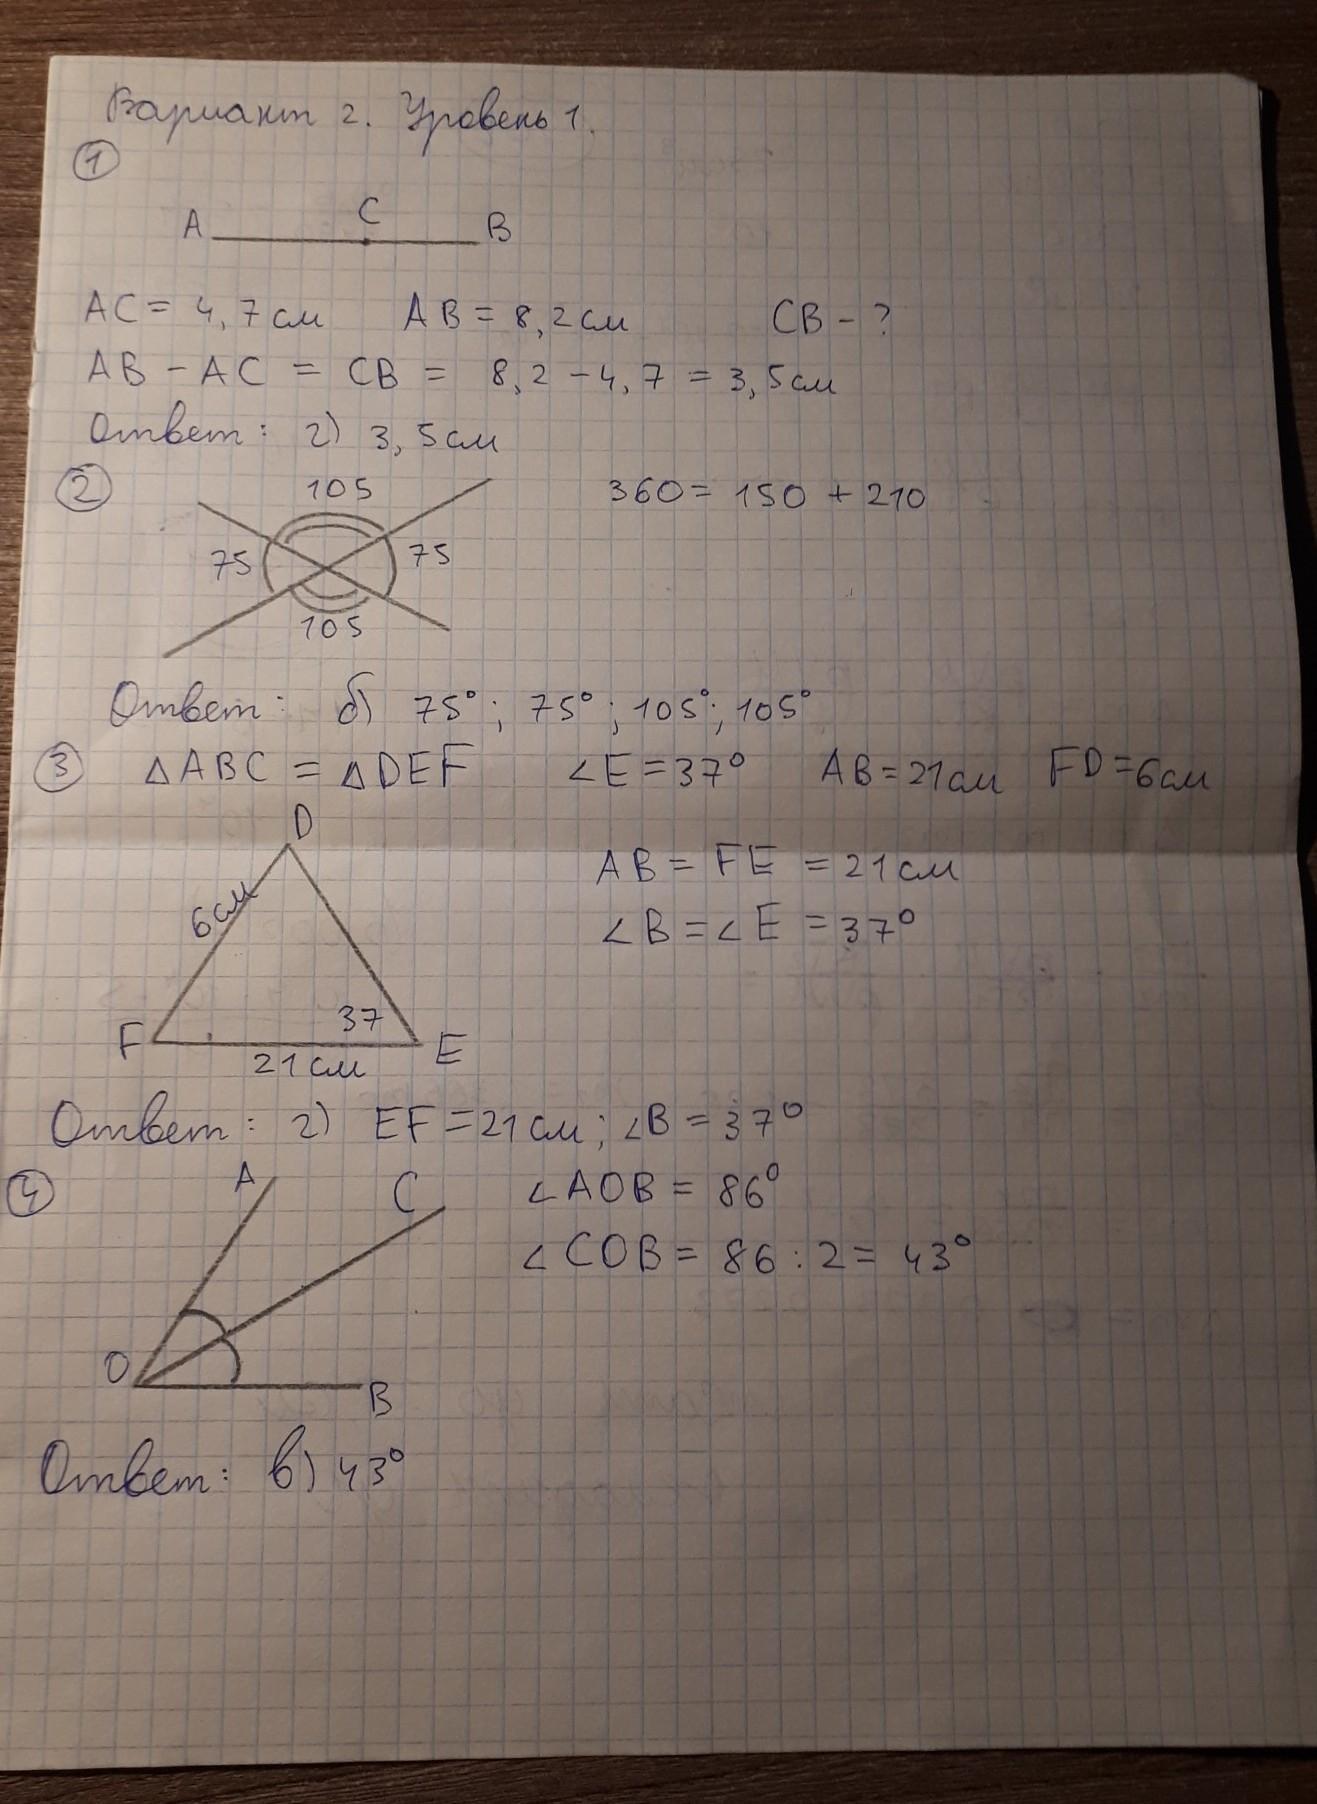 Вариант 2. Уровень 1.
1
A C B
AC = 4,7 см AB = 8,2 см CB - ?
AB - AC = CB = 8,2 - 4,7 = 3,5 см
Ответ: г) 3,5 см
2
105
360 = 150 + 210
75 75
105
Ответ: б) 75°; 75°; 105°; 105°
3 △ABC = △DEF ∠E = 37° AB = 21 см FD = 6 см
D
AB = FE = 21 см
6 см
∠B = ∠E = 37°
37
F E
21 см
Ответ: г) EF = 21 см; ∠B = 37°
4 A C ∠AOB = 86°
∠COB = 86 : 2 = 43°
O
B
Ответ: в) 43°